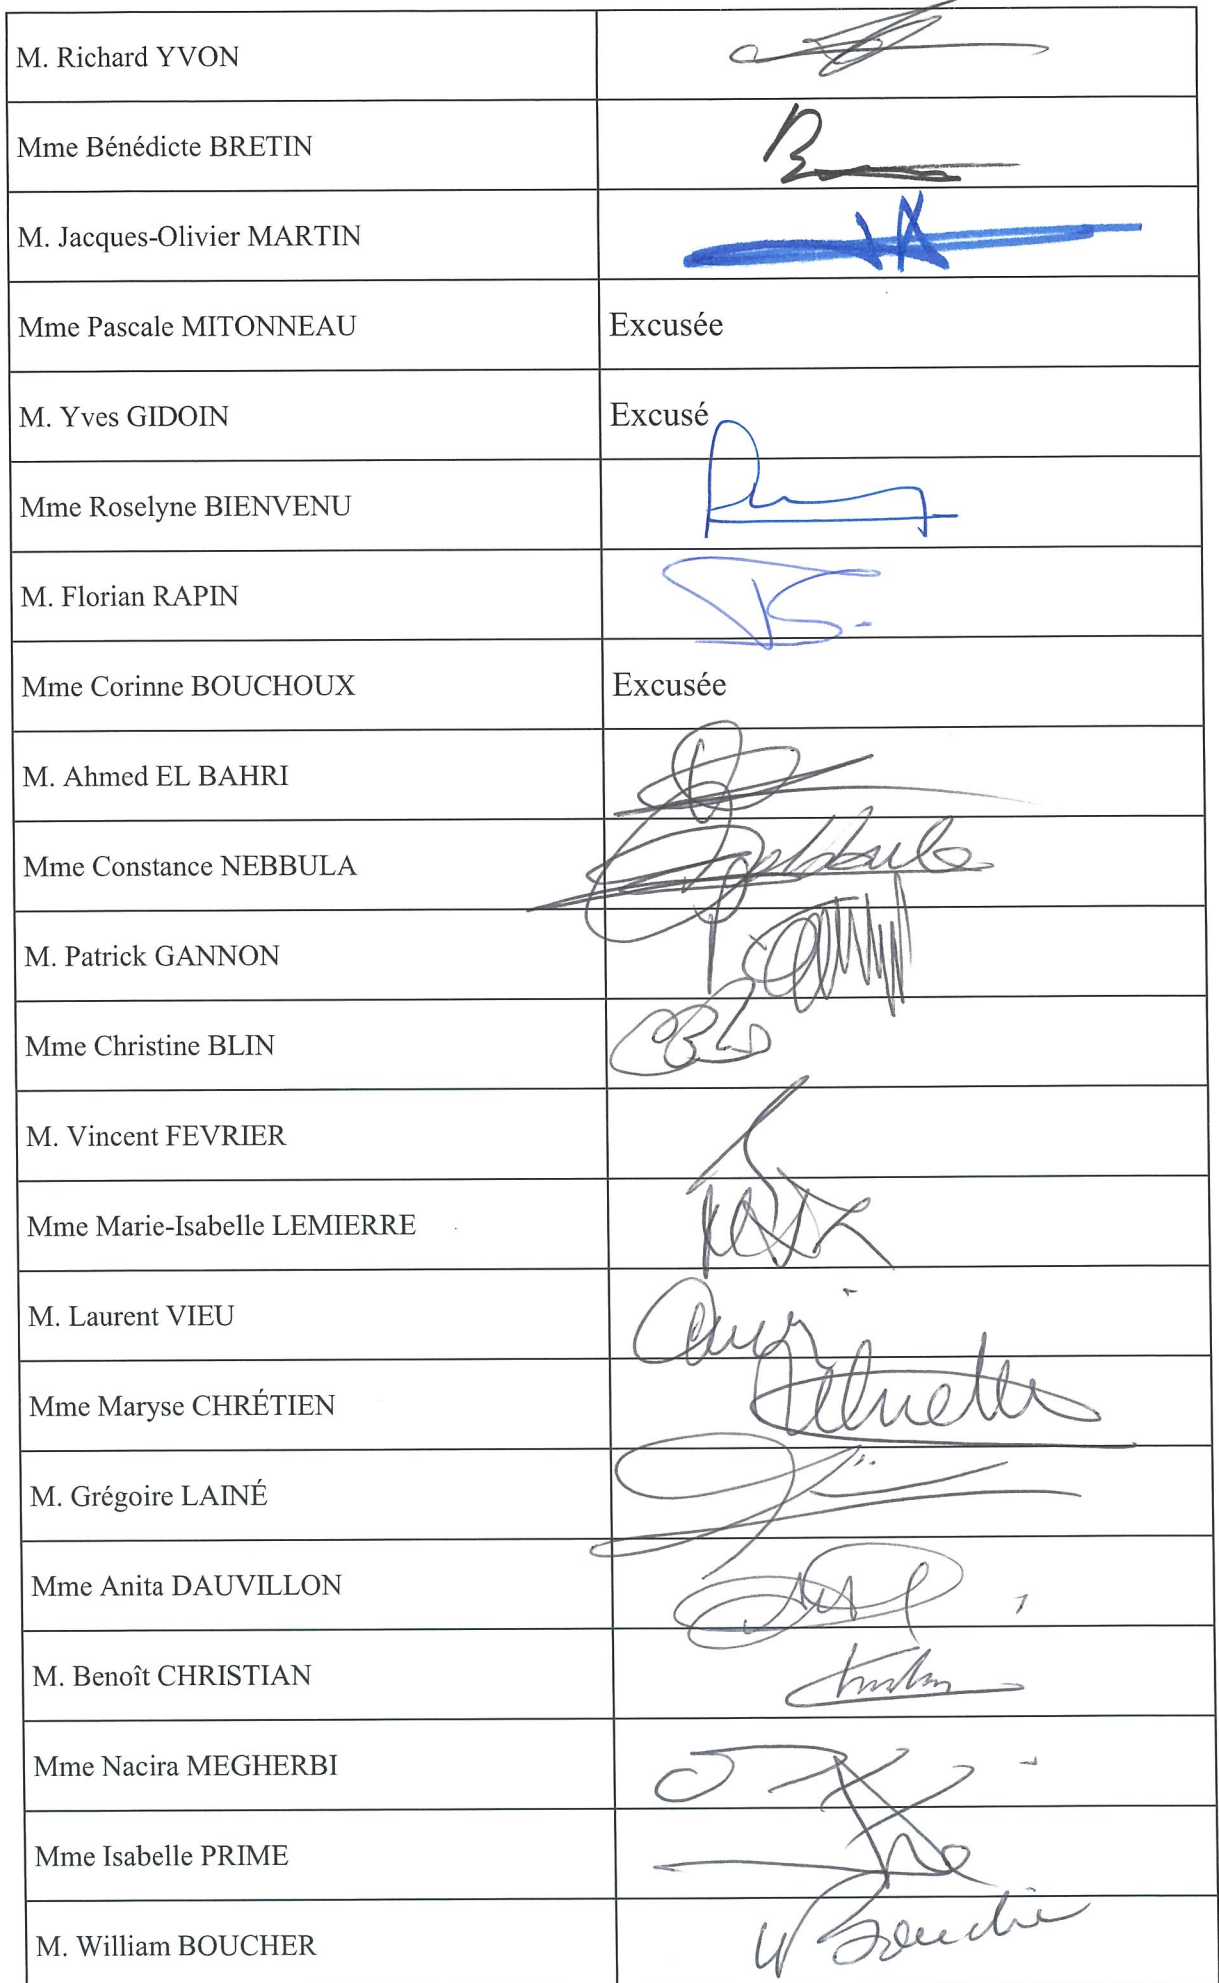 M. Richard YVON
Mme Bénédicte BRETIN
M. Jacques-Olivier MARTIN
Mme Pascale MITONNEAU Excusée
M. Yves GIDOIN Excusé
Mme Roselyne BIENVENU
M. Florian RAPIN
Mme Corinne BOUCHOUX Excusée
M. Ahmed EL BAHRI
Mme Constance NEBBULA
M. Patrick GANNON
Mme Christine BLIN
M. Vincent FEVRIER
Mme Marie-Isabelle LEMIERRE
M. Laurent VIEU
Mme Maryse CHRÉTIEN
M. Grégoire LAINÉ
Mme Anita DAUVILLON
M. Benoît CHRISTIAN
Mme Nacira MEGHERBI
Mme Isabelle PRIME
M. William BOUCHER